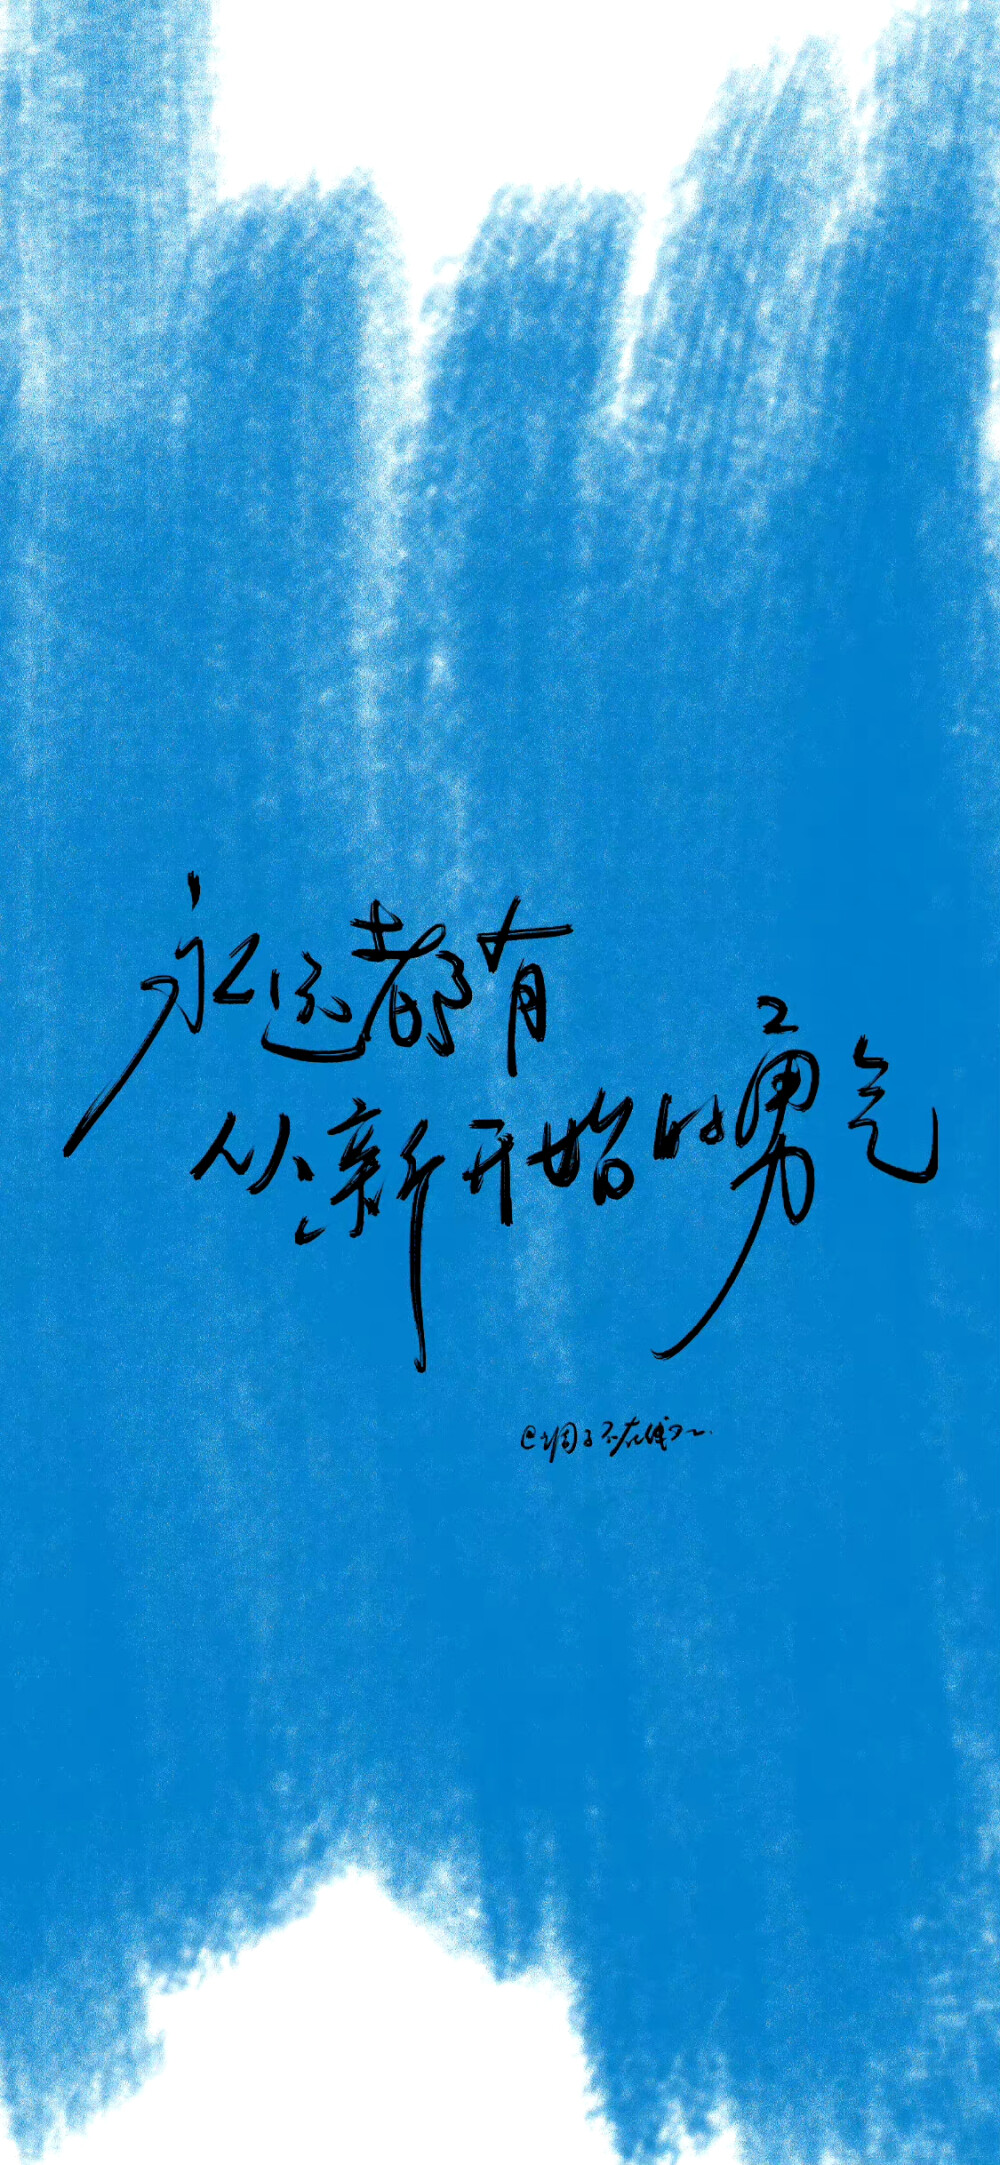 永远都有
从新开始的勇气